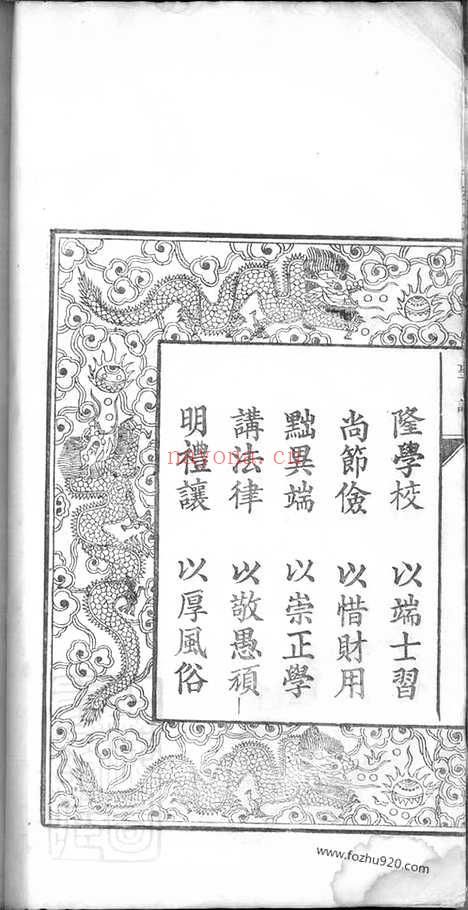 隆學校 以端士習
尚節儉 以惜財用
黜異端 以崇正學
講法律 以敬愚頑
明禮讓 以厚風俗
nayona.cn
www.fozhu920.com